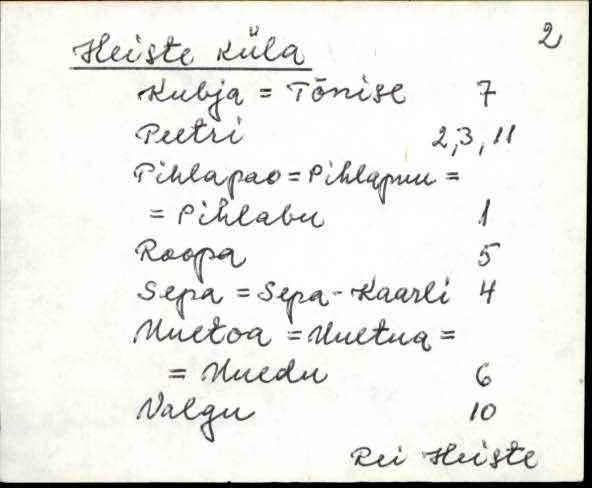 2
Heiste küla
Kubja = Tõnise 7
Peetri 2,3,11
Pihlapao = Pihlapuu =
= Pihlabu 1
Roopa 5
Sepa = Sepa-Kaarli 4
Uuetoa = Uuetua =
= Uuedu 6
Valgu 10
Rei Heiste